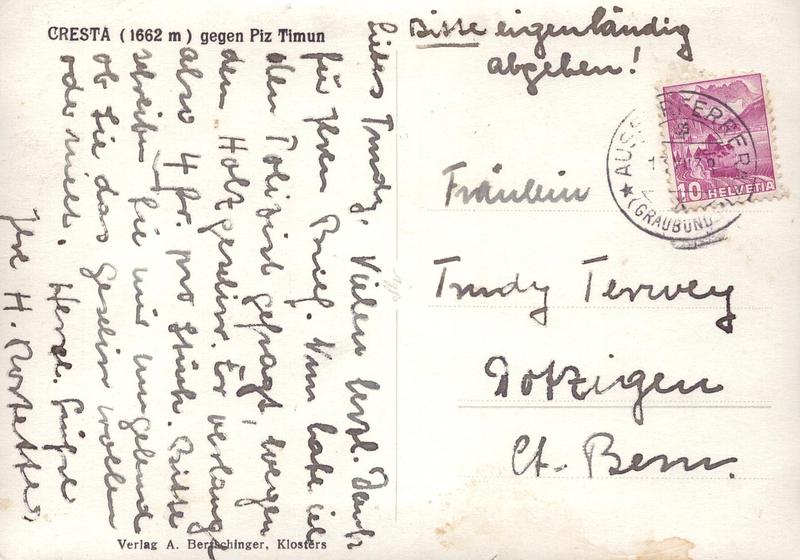 CRESTA (1662 m) gegen Piz Timun
Liebes Trudy, Vielen herzl. Dank
für Ihren Brief. Nun habe ich
den gefragt, wegen
dem Holz geschirr. Er verlangt
also 4 fr. pro Stück. Bitte
schreiben Sie mir umgehend
ob Sie das Geschirr wollen
oder nicht. Herzl. Grüsse
Ihre H.
Verlag A. Bertschinger, Klosters
Bitte eigenhändig
abgeben!
AUSSERFERRERA
(GRAUBÜND
10 HELVETIA
Fräulein
Trudy Terwey
Dotzigen
Ct. Bern.